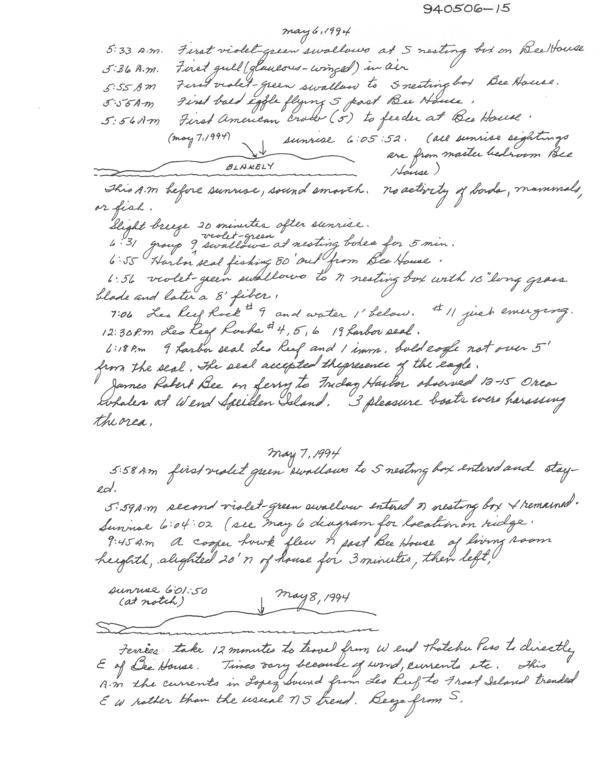 940506-15
May 6, 1994
5:33 A.m. First violet-green swallows at S nesting box on Bee House
5:36 A.m. First gull (glaucous-winged) in air
5:55 AM First violet-green swallow to S nesting box Bee House.
5:55 Am First bald eagle flying S past Bee House.
5:56 Am First American crow (5) to feeder at Bee House.
(may 7, 1994) sunrise 6:05:52. (all sunrise sightings
are from master bedroom Bee
BLAKELY
House)
This A.m before sunrise, sound smooth. No activity of birds, mammals,
or fish.
Slight breeze 20 minutes after sunrise.
violet-green
6:31 group 9 swallows at nesting boxes for 5 min.
6:55 Harbor seal fishing 80' out from Bee House.
6:56 violet-green swallows to N nesting box with 10" long grass
blade and later a 8' fiber.
7:06 Leo Reef Rock #9 and water 1' below. #11 just emerging.
12:30 Pm Leo Reef Rocks #4, 5, 6 19 harbor seal.
6:18 Pm 9 harbor seal Leo Reef and 1 imm. bald eagle not over 5'
from the seal. The seal accepted the presence of the eagle.
James Robert Bee on ferry to Friday Harbor observed 12-15 Orca
whales at W end Speiden Island. 3 pleasure boats were harassing
the orca.
May 7, 1994
5:58 Am first violet green swallows to S nesting box entered and stay-
ed.
5:59 A.m second violet-green swallow entered N nesting box & remained.
Sunrise 6:04:02 (see May 6 diagram for location on ridge.
9:45 a.m A cooper hawk flew N past Bee House at living room
heighth, alighted 20' N of house for 3 minutes, then left.
sunrise 6:01:50
(at notch)
May 8, 1994
Ferries take 12 minutes to travel from W end Thatcher Pass to directly
E of Bee House. Times vary because of wind, currents etc. This
A.m the currents in Lopez Sound from Leo Reef to Frost Island trended
E W rather than the usual N S trend. Beeze from S.